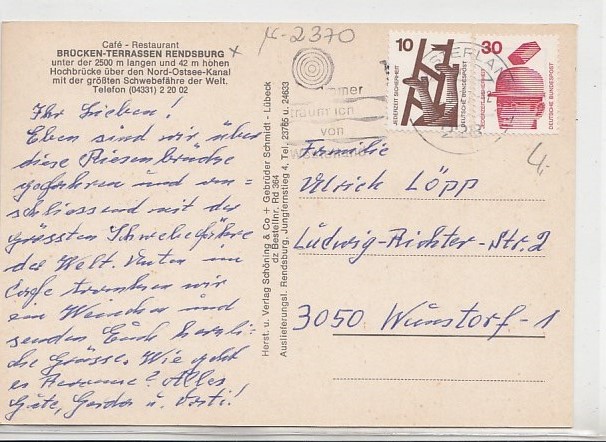 Café - Restaurant
BRÜCKEN-TERRASSEN RENDSBURG
unter der 2500 m langen und 42 m hohen
Hochbrücke über den Nord-Ostsee-Kanal
mit der größten Schwebefähre der Welt.
Telefon (04331) 2 20 02
Ihr Lieben!
Eben sind wir über
diese Riesenbrücke
gefahren und an-
schliessend mit der
grössten Schwebefähre
der Welt. Unten im
Cafe tranken wir
ein Weinchen und
senden Euch herzli-
che Grüsse. Wie geht
es
Alles
Gute, Gerda u.
Herst. u. Verlag Schöning & Co + Gebrüder Schmidt - Lübeck
dz Bestellnr. Rd 364
Auslieferungsl. Rendsburg, Jungfernstieg 4, Tel. 23765 u. 24633
µ-2370
träum ich
von
10
JEDERZEIT SICHERHEIT
DEUTSCHE BUNDESPOST
30
JEDERZEIT SICHERHEIT
DEUTSCHE BUNDESPOST
4,-
Familie
Ulrich Löpp
Ludwig-Richter-Str. 2
3050 Wunstorf-1